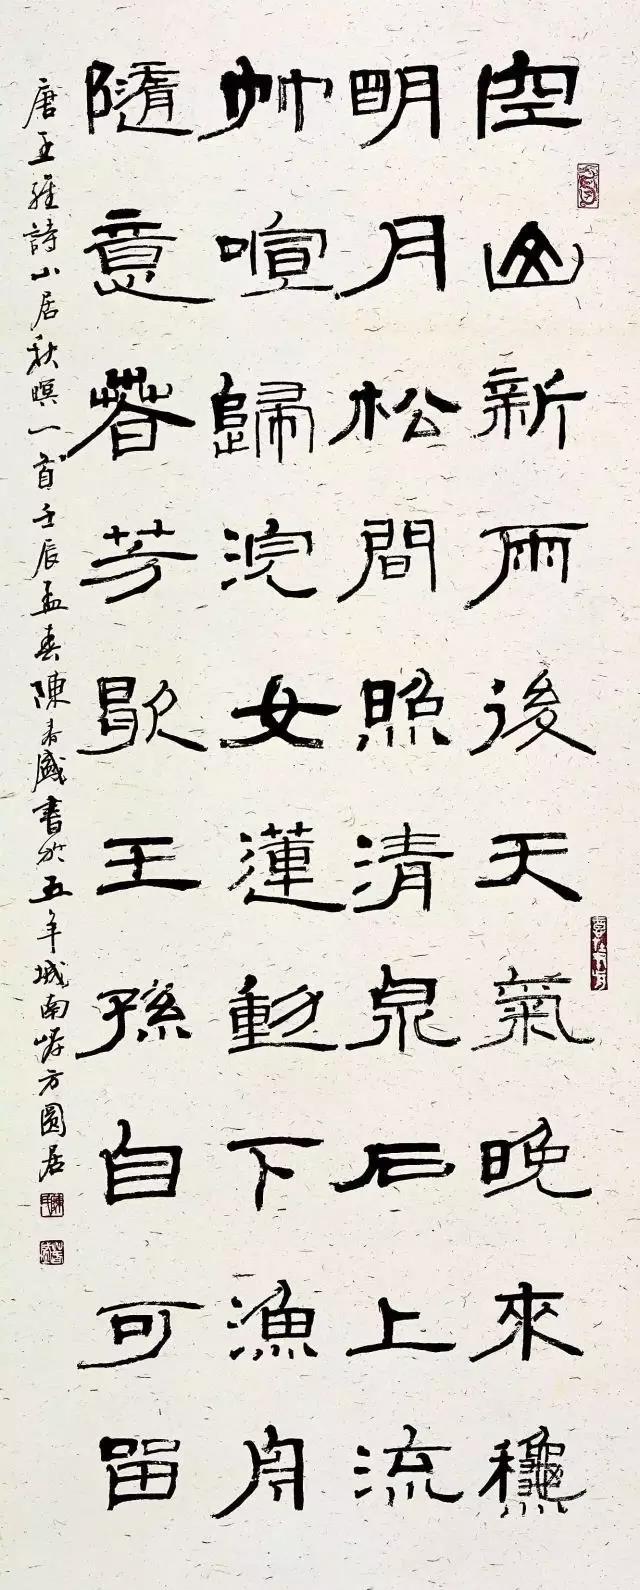 空山新雨後天氣晚來龝
明月松間照清泉石上流
竹喧歸浣女蓮動下漁舟
隨意春芳歇王孫自可留
唐王維詩山居秋暝一首壬辰孟春陳盛書於五羊城南方圓居